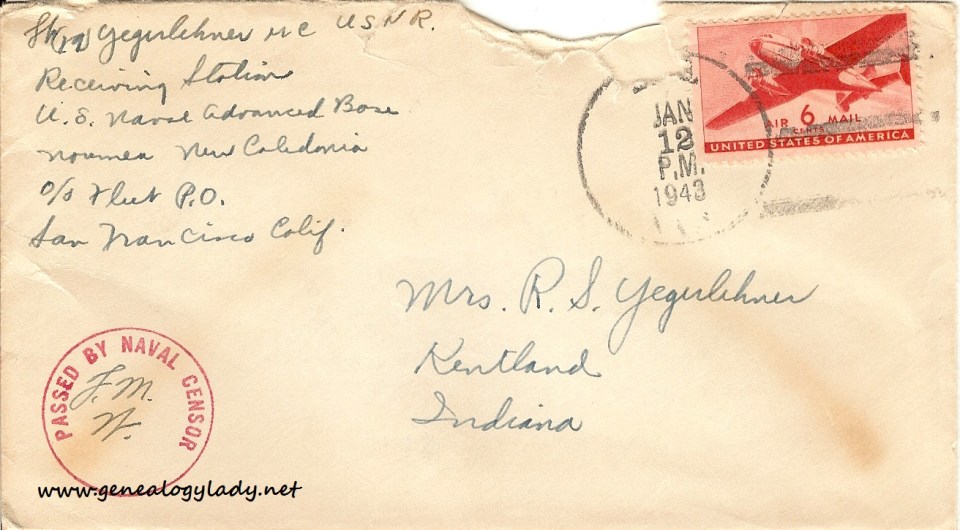 Yegerlehner MC U.S.N.R.
Receiving Station
U.S. Naval Advanced Base
Noumea New Caledonia
c/o Fleet P.O.
San Francisco Calif.
JAN
12
P.M.
1943
AIR 6 MAIL
CENTS
UNITED STATES OF AMERICA
Mrs. R. S. Yegerlehner
Kentland
Indiana
PASSED BY NAVAL CENSOR
www.genealogylady.net